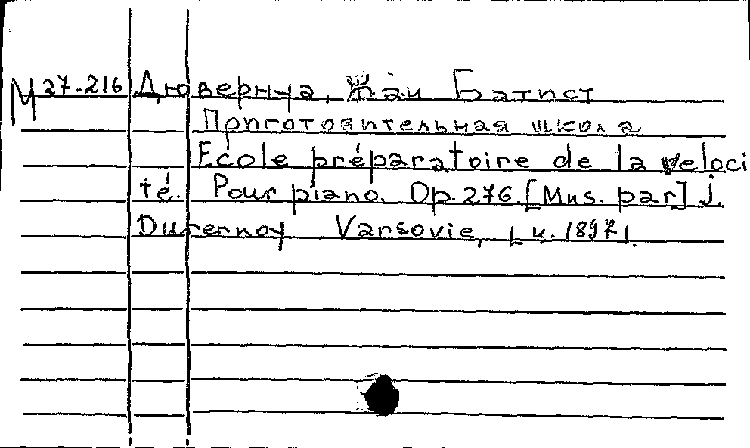 М 37-216 Дювернуа, Жан Батист
Приготовительная школа
Ecole préparatoire de la veloci
té. Pour piano. Op. 276. [Mus. par] J.
Duvernoy Varsovie, [ц. 1897].